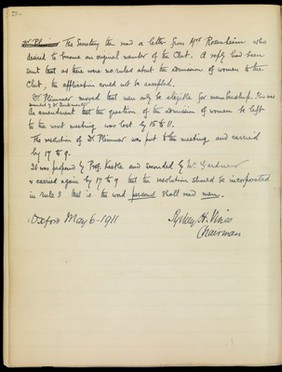 The Secretary then read a letter from Mrs Rosenheim who
desired to become an original member of the Club. A reply had been
sent that as there were no rules about the admission of women to the
Club, the application could not be accepted.
Dr. Plimmer moved that men only be eligible for membership. This was
seconded by Dr
the amendment that the question of the admission of women be left
to the next meeting was lost by 15 to 11.
The resolution of Dr Plimmer was put to the meeting and carried
by 17 to 9.
It was proposed by Prof. and seconded by Mr Gardner
& carried again by 17 to 9 that the resolution should be incorporated
in rule 3 that is the word person shall read man.
Oxford May 6 - 1911
Sydney H. Vines
Chairman